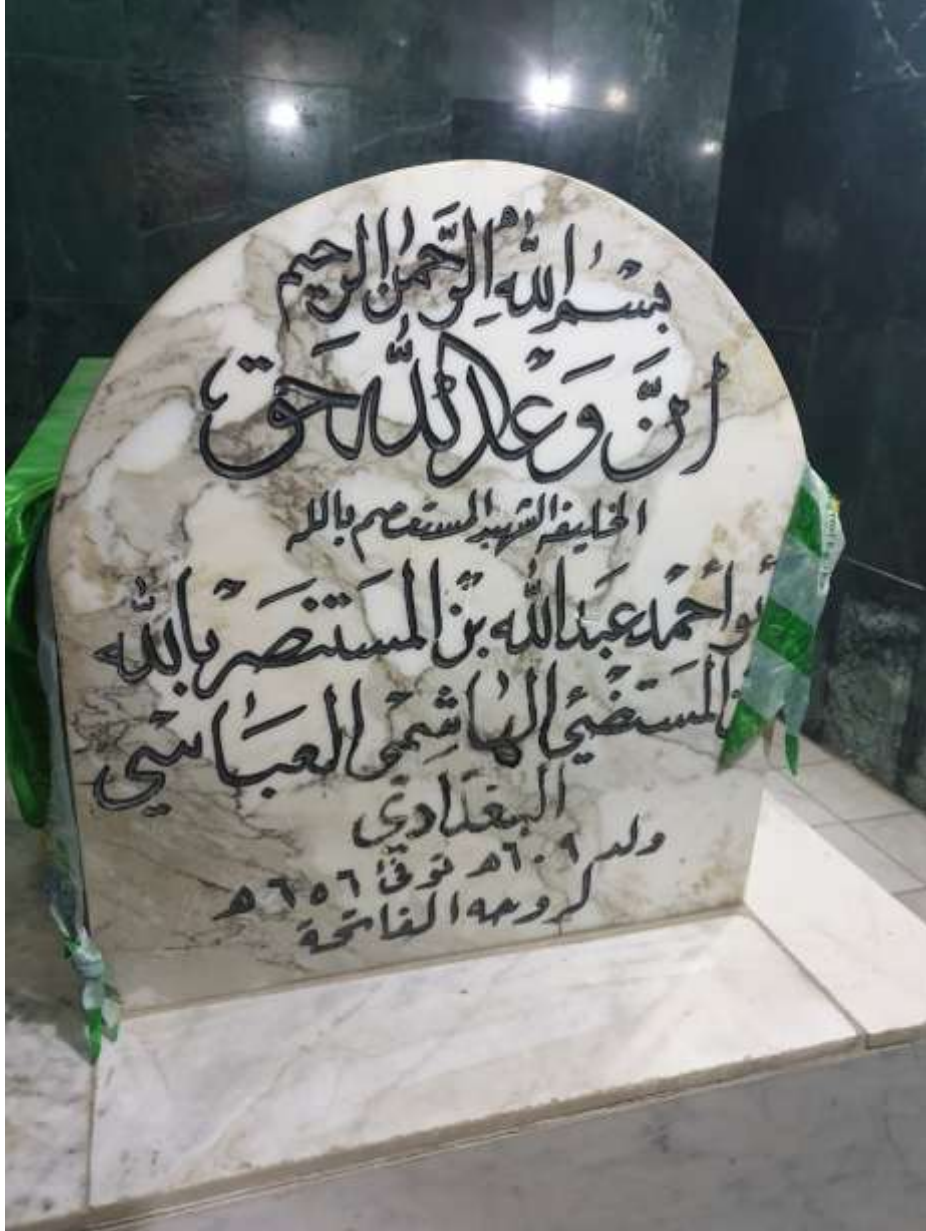 بِسْمِ اللهِ الرَّحْمٰنِ الرحيم
إنَّ وَعْدَ اللّٰهِ حَق
الخليفة الشهيد المستعصم بالله
أبو أحْمد عبَد اللّٰه بْن المسَتنصَرْ باللّٰه
المستضئي الهاشِمْي العبَاسْي
البغدادي
ولد ٦٠٩هـ توفي ٦٥٦هـ
لروحه الفاتحة